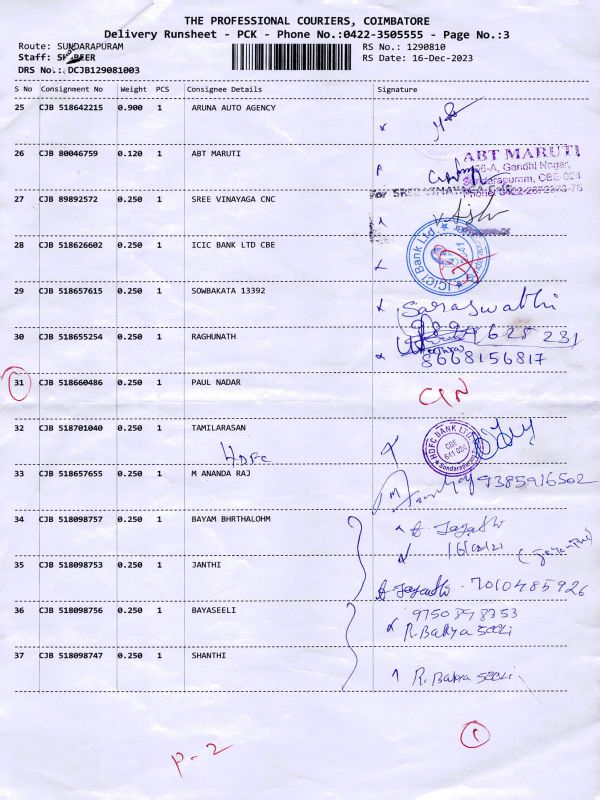 THE PROFESSIONAL COURIERS, COIMBATORE
Delivery Runsheet - PCK - Phone No.:0422-3505555 - Page No.:3
Route: SUNDARAPURAM
RS No.: 1290810
Staff:
RS Date: 16-Dec-2023
DRS No.: DCJB129081003
S No Consignment No Weight PCS Consignee Details Signature
25 CJB 518642215 0.900 1 ARUNA AUTO AGENCY
26 CJB 80046759 0.120 1 ABT MARUTI
ABT MARUTI
Gandhi Nagar,
Sundarapuram, CBE-024
27 CJB 89892572 0.250 1 SREE VINAYAGA CNC
For SREE VINAYAGA CNC
28 CJB 518626602 0.250 1 ICIC BANK LTD CBE
ICICI Bank Ltd.
29 CJB 518657615 0.250 1 SOWBAKATA 13392
Saraswathi
30 CJB 518655254 0.250 1 RAGHUNATH
8668156817
31 CJB 518660486 0.250 1 PAUL NADAR
32 CJB 518701040 0.250 1 TAMILARASAN
HDFC
HDFC BANK LTD.
CBE
641 024
Sundarapuram
33 CJB 518657655 0.250 1 M ANANDA RAJ
9385916502
34 CJB 518098757 0.250 1 BAYAM BHRTHALOHM
35 CJB 518098753 0.250 1 JANTHI
7010485926
36 CJB 518098756 0.250 1 BAYASEELI
R. Bakya Seeli
37 CJB 518098747 0.250 1 SHANTHI
R. Bakya Seeli
P-2
1